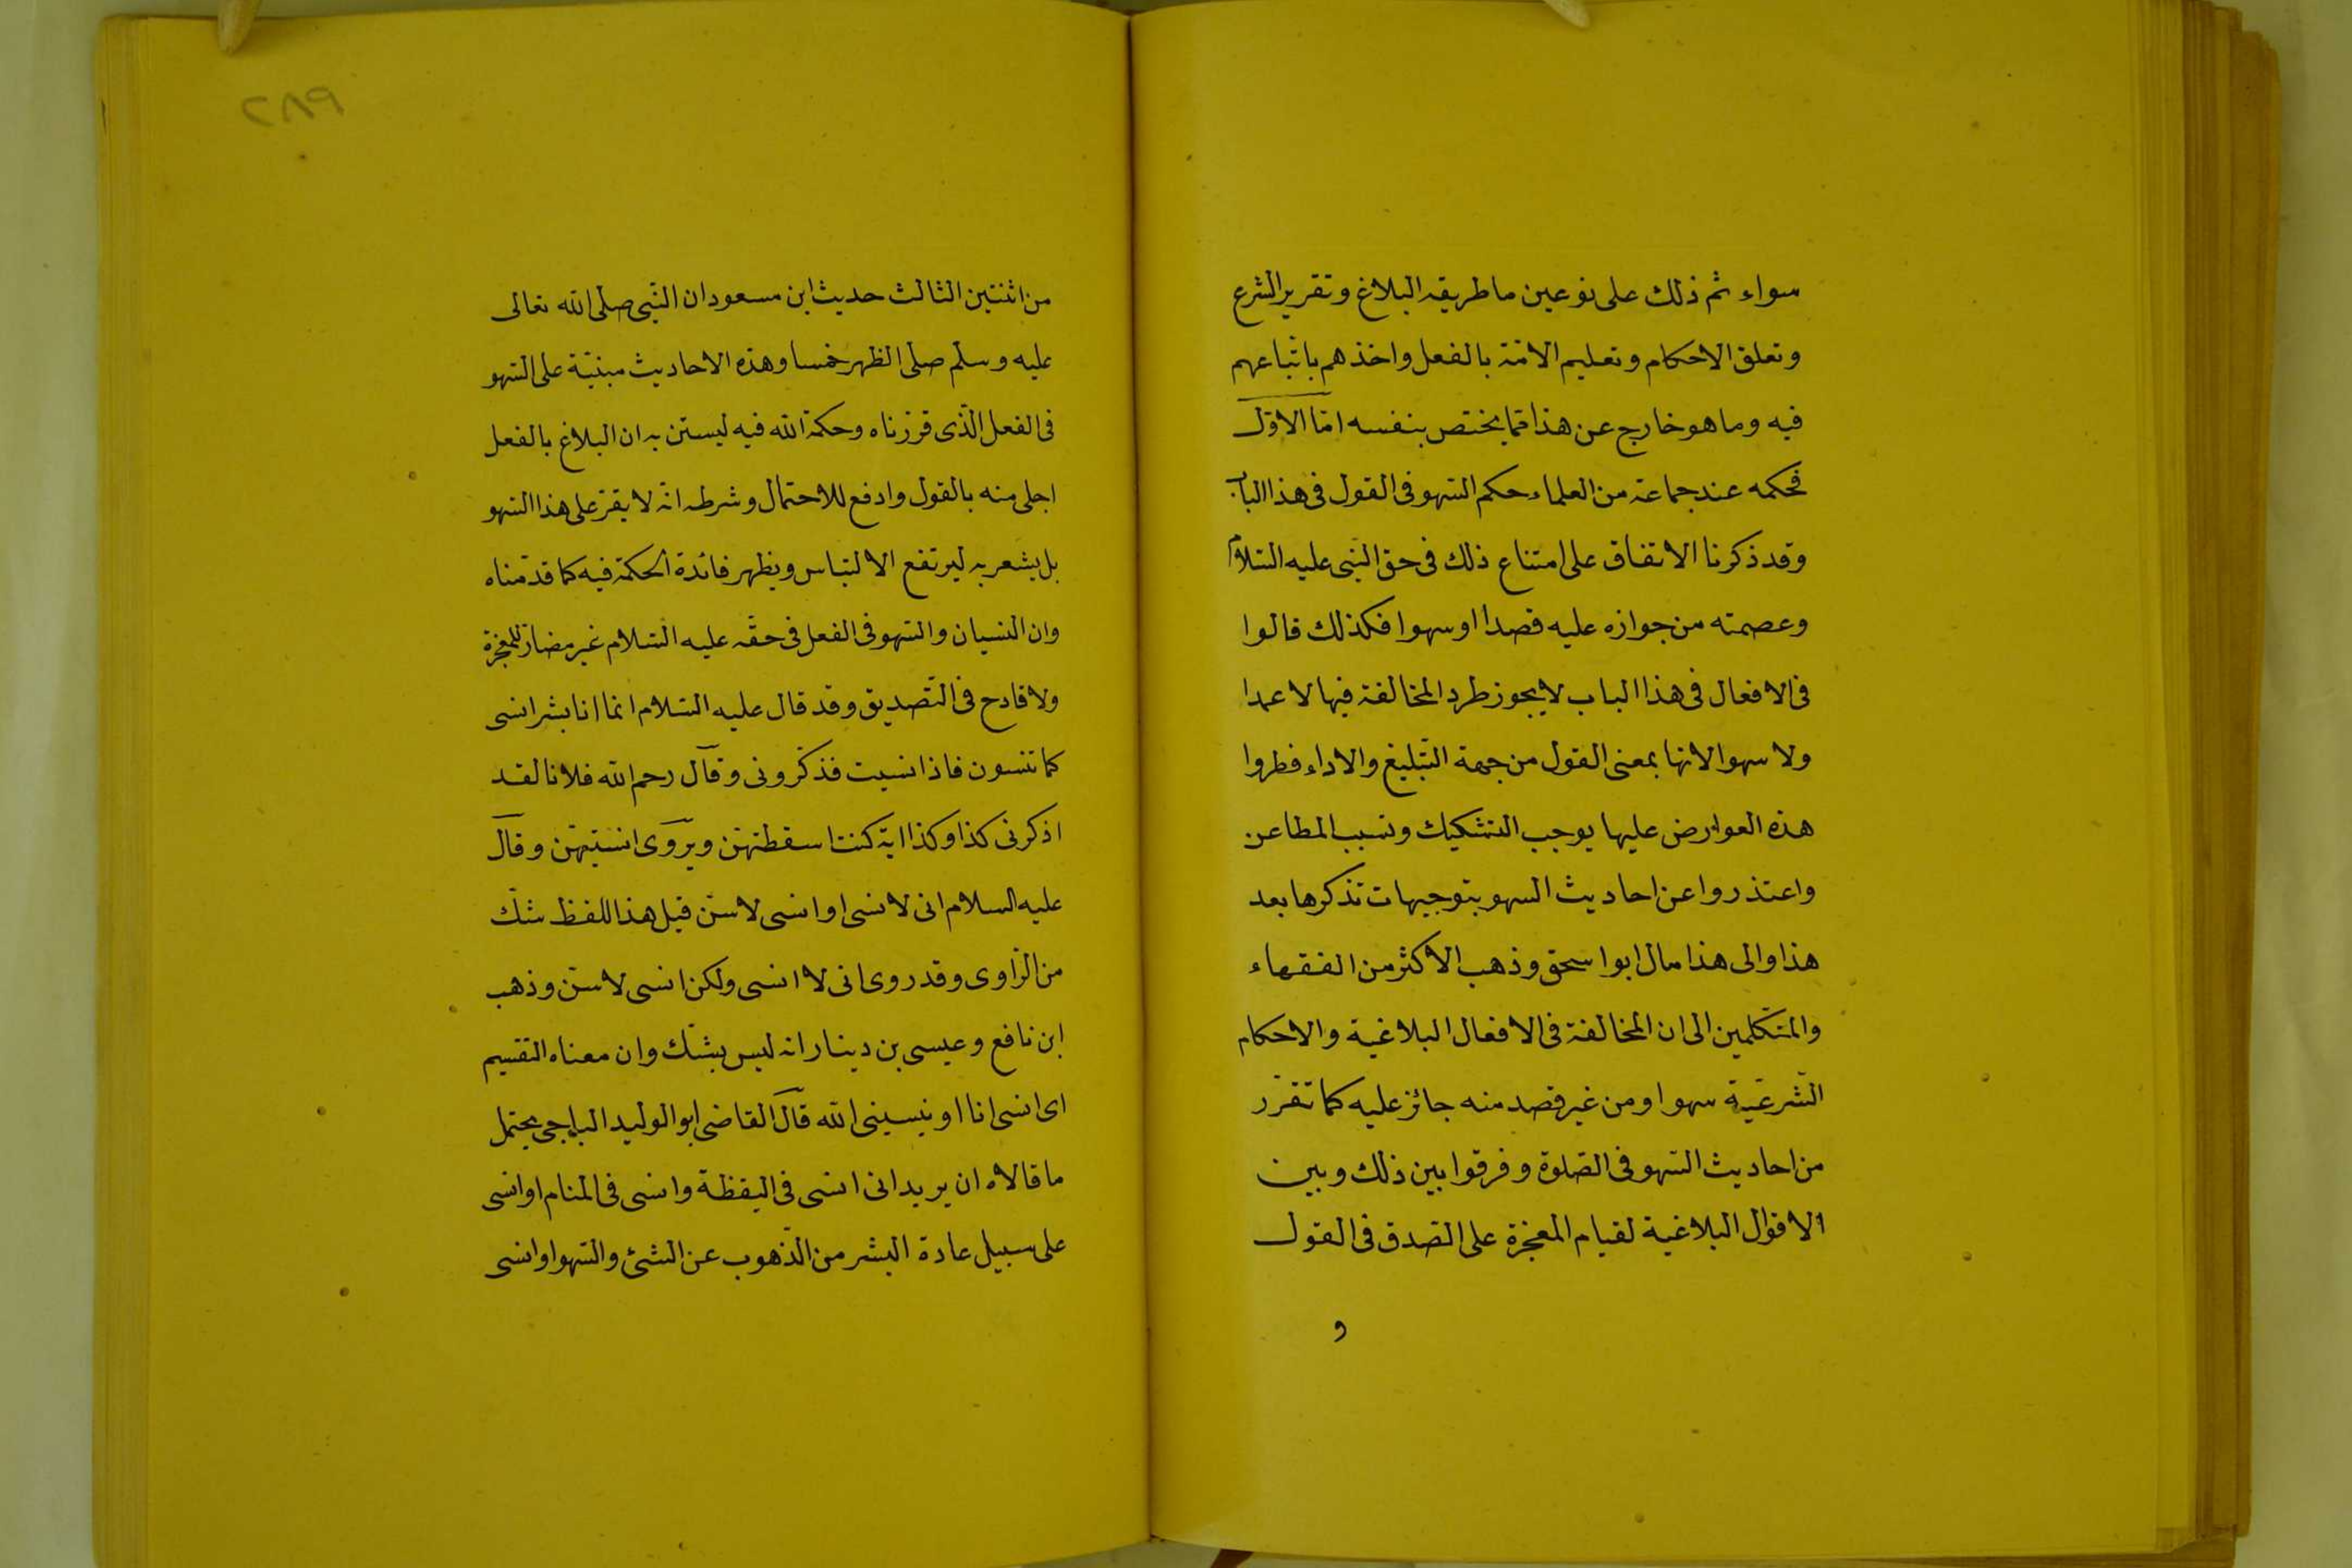 سواء ثم ذلك على نوعين ما طريقه البلاغ وتقرير الشرع
وتعلق الاحكام وتعليم الامّة بالفعل واخذهم باتّباعهم
فيه وما هو خارج عن هذا ممّا يختص بنفسه امّا الاوّل
فحكمه عند جماعة من العلماء حكم السّهو فى القول فى هذا الباب
وقد ذكرنا الاتفاق على امتناع ذلك فى حق النّبى عليه السّلام
وعصمته من جوازه عليه قصدا او سهوا فكذلك قالوا
فى الافعال فى هذا الباب لا يجوز طرد المخالفة فيها لا عمدا
ولا سهوا لانها بمعنى القول من جهة التّبليغ والاداء فطروا
هذه العوارض عليها يوجب التشكيك وتسبب المطاعن
واعتذروا عن احاديث السهو بتوجيهات نذكرها بعد
هذا والى هذا مال ابو اسحق وذهب الاكثر من الفقهاء
والمتكلّمين الى ان المخالفة فى الافعال البلاغية والاحكام
الشّرعيّة سهوا ومن غير قصد منه جائز عليه كما تقرّر
من احاديث السّهو فى الصّلوة وفرقوا بين ذلك وبين
الاقوال البلاغية لقيام المعجزة على الصّدق فى القول
و
٢٨٩
من اثنتين الثالث حديث ابن مسعود ان النّبى صلّى الله تعالى
عليه وسلّم صلّى الظهر خمسا وهذه الاحاديث مبنيّة على السّهو
فى الفعل الّذى قرّرناه وحكمة الله فيه ليستن به ان البلاغ بالفعل
اجلى منه بالقول وادفع للاحتمال وشرطه انّه لا يقرّ على هذا السّهو
بل يشعر به ليرتفع الالتباس ويظهر فائدة الحكمة فيه كما قدّمناه
وان النسيان والسّهو فى الفعل فى حقّه عليه السّلام غير مضادّ للمعجزة
ولا قادح فى التّصديق وقد قال عليه السّلام انما انا بشر انسى
كما تنسون فاذا نسيت فذكّرونى وقال رحم الله فلانا لقد
اذكرنى كذا وكذا اية كنت اسقطتهنّ ويروى انسيتهنّ وقال
عليه السلام انى لانسى او انسى لاسنّ قيل هذا اللفظ شكّ
من الرّاوى وقد روى انى لا انسى ولكن انسى لاسنّ وذهب
ابن نافع وعيسى بن دينار انه ليس بشكّ وان معناه التقسيم
اى انسى انا او ينسينى الله قال القاضى ابو الوليد الباجى يحتمل
ما قالاه ان يريد انى انسى فى اليقظة وانسى فى المنام او انسى
على سبيل عادة البشر من الذّهوب عن الشئ والسّهو او انسى